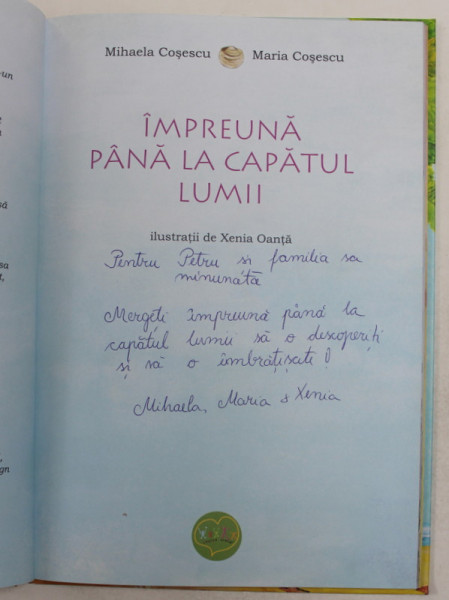 Mihaela Coșescu Maria Coșescu
ÎMPREUNĂ
PÂNĂ LA CAPĂTUL
LUMII
ilustrații de Xenia Oanță
Pentru Petru și familia sa
minunată
Mergeți împreună până la
capătul lumii să o descoperiți
și să o îmbrățișați!
Mihaela, Maria & Xenia